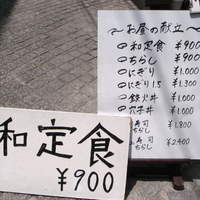 ～お昼の献立～
○和定食 ¥900
○ちらし ¥900
○にぎり ¥1.000
○にぎり1.5 ¥1.300
○鉄火丼 ¥1.000
○穴子丼 ¥1.000
寿司 ¥1.800
ちらし
寿司 ¥2.400
和定食
¥900